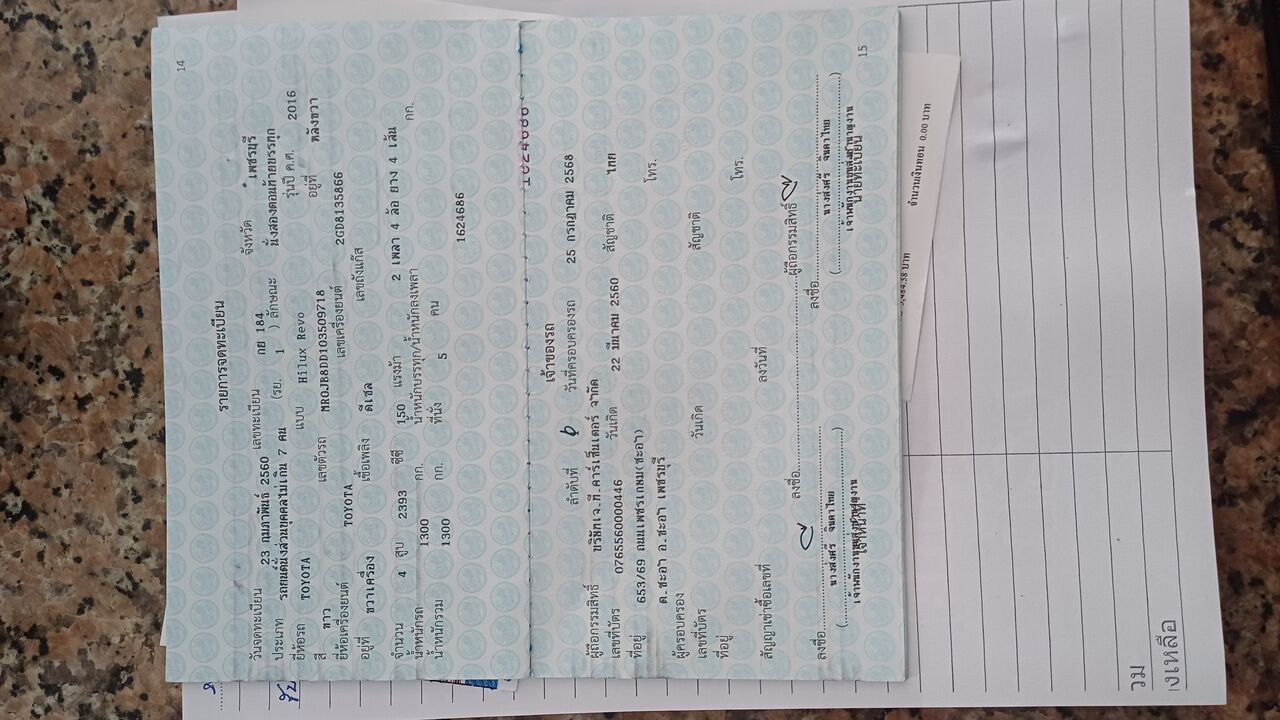 14
รายการจดทะเบียน
วันจดทะเบียน 23 กุมภาพันธ์ 2560 เลขทะเบียน กย 184 จังหวัด เพชรบุรี
ประเภท รถยนต์นั่งส่วนบุคคลไม่เกิน 7 คน (รย. 1 ) ลักษณะ นั่งสองตอนท้ายบรรทุก
ยี่ห้อรถ TOYOTA แบบ Hilux Revo รุ่นปี ค.ศ. 2016
สี ขาว เลขตัวรถ MROJB8DD103509718 อยู่ที่ หลังขวา
ยี่ห้อเครื่องยนต์ TOYOTA เลขเครื่องยนต์ 2GD8135866
อยู่ที่ ขวาเครื่อง เชื้อเพลิง ดีเซล เลขถังแก๊ส
จำนวน 4 สูบ 2393 ซีซี 150 แรงม้า 2 เพลา 4 ล้อ ยาง 4 เส้น
น้ำหนักรถ 1300 กก. น้ำหนักบรรทุก/น้ำหนักลงเพลา กก.
น้ำหนักรวม 1300 กก. ที่นั่ง 5 คน
1624686
เจ้าของรถ
ลำดับที่ 6 วันที่ครอบครองรถ 25 กรกฎาคม 2568
ผู้ถือกรรมสิทธิ์ บริษัทเจ.ที.คาร์เซ็นเตอร์ จำกัด
เลขที่บัตร 0765560000446 วันเกิด 22 มีนาคม 2560 สัญชาติ ไทย
ที่อยู่ 653/69 ถนนเพชรเกษม(ชะอำ) โทร.
ต.ชะอำ อ.ชะอำ เพชรบุรี
ผู้ครอบครอง
เลขที่บัตร วันเกิด สัญชาติ
ที่อยู่ โทร.
สัญญาเช่าซื้อเลขที่ ลงวันที่
ลงชื่อ ผู้ถือกรรมสิทธิ์
ลงชื่อ ลงชื่อ
นางส่งศรี จินดาไทย นางส่งศรี จินดาไทย
เจ้าหน้าที่ นายทะเบียน
15
จำนวนเงินทอน 0.00 บาท
บาท
วม
งเหลือ